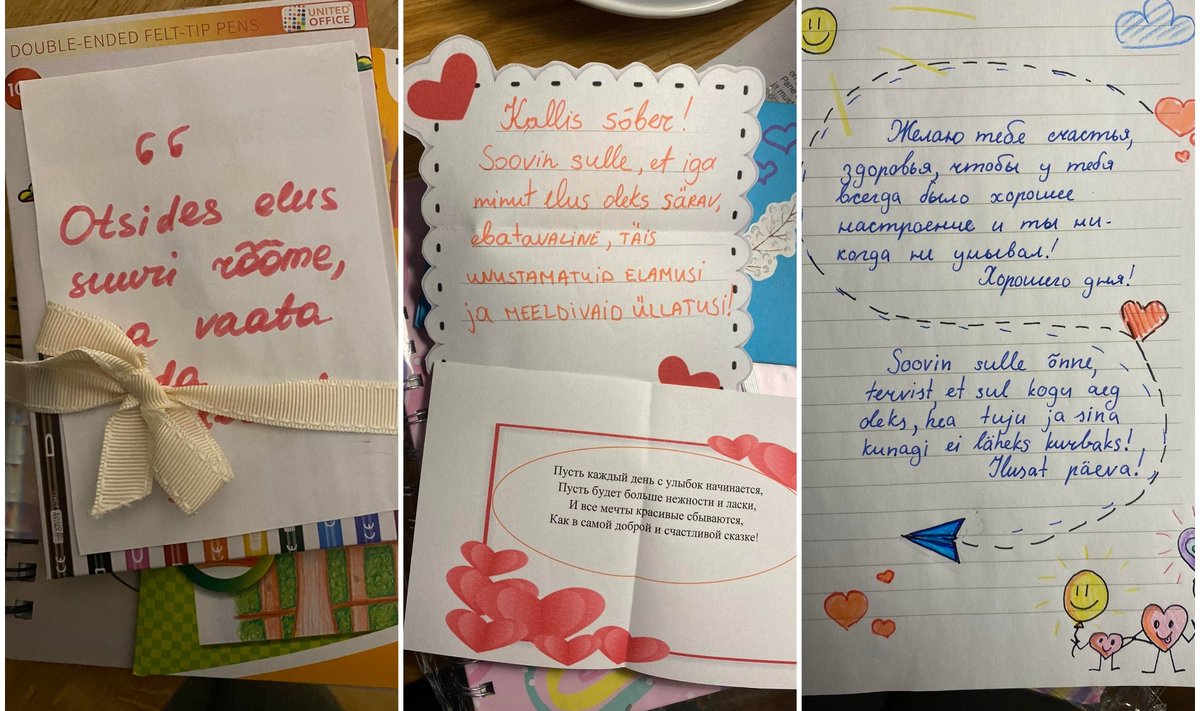 DOUBLE-ENDED FELT-TIP PENS
UNITED
OFFICE
10
“
Otsides elus
suuri rõõme,
vaata
Kallis sõber!
Soovin sulle, et iga
minut elus oleks särav,
ebatavaline, TÄIS
UNUSTAMATUID ELAMUSI
ja MEELDIVAID ÜLLATUSI!
Пусть каждый день с улыбок начинается,
Пусть будет больше нежности и ласки,
И все мечты красивые сбываются,
Как в самой доброй и счастливой сказке!
Желаю тебе счастья,
здоровья, чтобы у тебя
всегда было хорошее
настроение и ты ни-
когда не унывал!
Хорошего дня!
Soovin sulle õnne,
tervist et sul kogu aeg
oleks, hea tuju ja sina
kunagi ei läheks kurbaks!
Ilusat päeva!